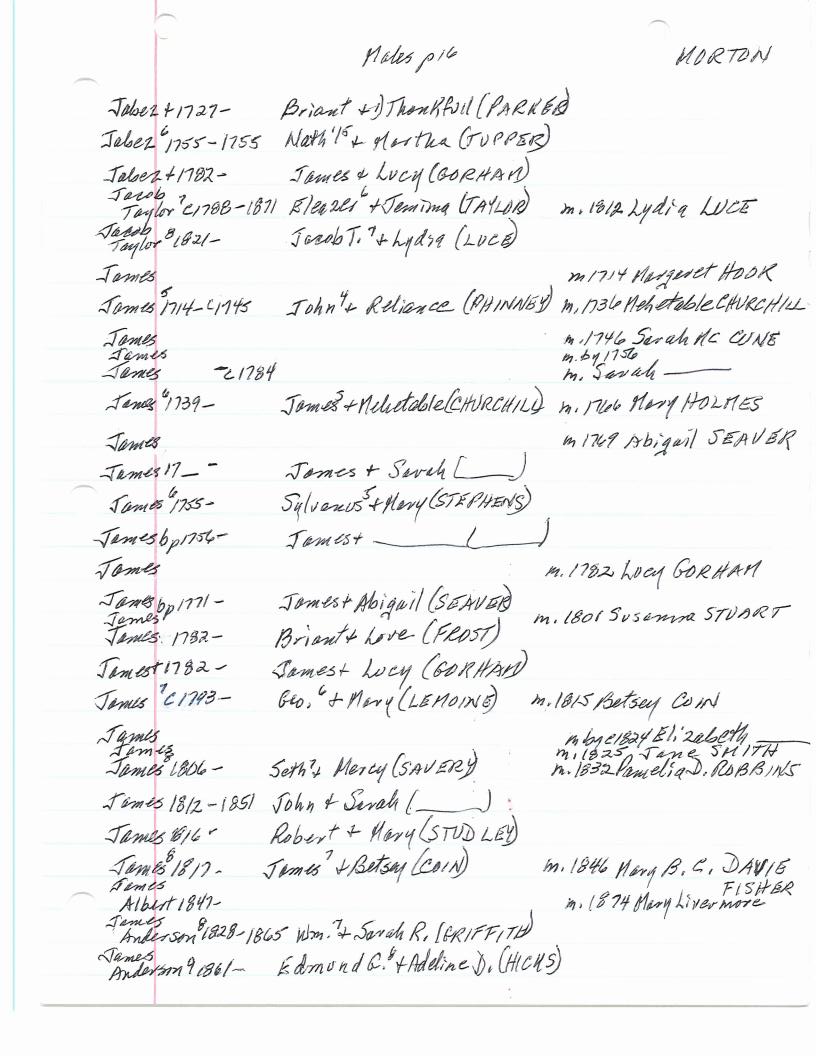 Males p 16 MORTON
Jabez t 1727- Briant + 1) Thankfull (PARKER)
Jabez 6 1755-1755 Nath'l 5 + Martha (TUPPER)
Jabez t 1782- James + Lucy (GORHAM)
Jacob
Taylor 7 c1788-1871 Eleazer 6 + Jemima (TAYLOR) m. 1812 Lydia LUCE
Jacob
Taylor 8 1821- Jacob T. 7 + Lydia (LUCE)
James m 1714 Margaret HOOK
James 5 1714-c1745 John 4 + Reliance (PHINNEY) m. 1736 Mehetable CHURCHILL
James m. 1746 Sarah Mc CUNE
James m. by 1756
James -c1784 m. Sarah ____
James 6 1739- James 5 + Mehetable (CHURCHILL) m. 1766 Mary HOLMES
James m 1769 Abigail SEAVER
James 17__ - James + Sarah (____)
James 6 1755- Sylvanus 5 + Mary (STEPHENS)
James bp 1756- James + ____ (____)
James m. 1782 Lucy GORHAM
James bp 1771- James + Abigail (SEAVER)
James m. 1801 Susanna STUART
James 1782- Briant + Love (FROST)
James t 1782- James + Lucy (GORHAM)
James 7 c1793- Geo. 6 + Mary (LEMOINE) m. 1815 Betsey COIN
James m by c1824 Elizabeth ____
James m. 1825 Jane SMITH
James 8 1806- Seth 7 + Mercy (SAVERY) m. 1832 Pamelia D. ROBBINS
James 1812-1851 John + Sarah (____)
James 1816- Robert + Mary (STUDLEY)
James 8 1817- James 7 + Betsey (COIN) m. 1846 Mary B. C. DAVIE
James FISHER
Albert 1847- m. 1874 Mary Livermore
James
Anderson 8 1828-1865 Wm. 7 + Sarah R. (GRIFFITH)
James
Anderson 9 1861- Edmund G. 8 + Adeline D. (HICKS)